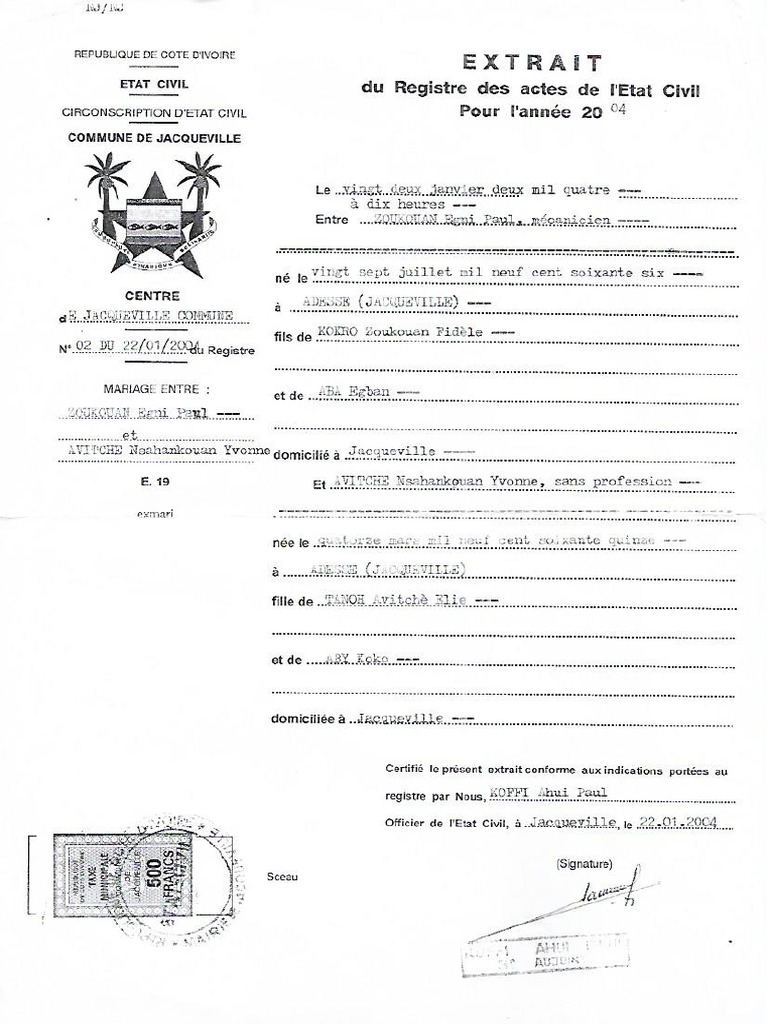 NJ/NJ
REPUBLIQUE DE COTE D'IVOIRE
ETAT CIVIL
CIRCONSCRIPTION D'ETAT CIVIL
COMMUNE DE JACQUEVILLE
CENTRE
dE JACQUEVILLE COMMUNE
N° 02 DU 22/01/2004 du Registre
MARIAGE ENTRE :
ZOUKOUAN Egni Paul ---
et
AVITCHE Nsahankouan Yvonne
E. 19
exmari
EXTRAIT
du Registre des actes de l'Etat Civil
Pour l'année 20 04
Le vingt deux janvier deux mil quatre ---
à dix heures ---
Entre ZOUKOUAN Egni Paul, mécanicien ----
né le vingt sept juillet mil neuf cent soixante six ----
à ADESSE (JACQUEVILLE) ---
fils de KOKRO Zoukouan Fidèle ---
et de ABA Egban ---
domicilié à Jacqueville ----
Et AVITCHE Nsahankouan Yvonne, sans profession ---
née le quatorze mars mil neuf cent soixante quinze ---
à ADESSE (JACQUEVILLE)
fille de TANOH Avitchè Elie ---
et de ABY Koko ---
domiciliée à Jacqueville ---
Certifié le présent extrait conforme aux indications portées au
registre par Nous, KOFFI Ahui Paul
Officier de l'Etat Civil, à Jacqueville, le 22.01.2004
(Signature)
Sceau
TAXE
MUNICIPALE
JACQUEVILLE
500
FRANCS
MAIRIE
AHUI